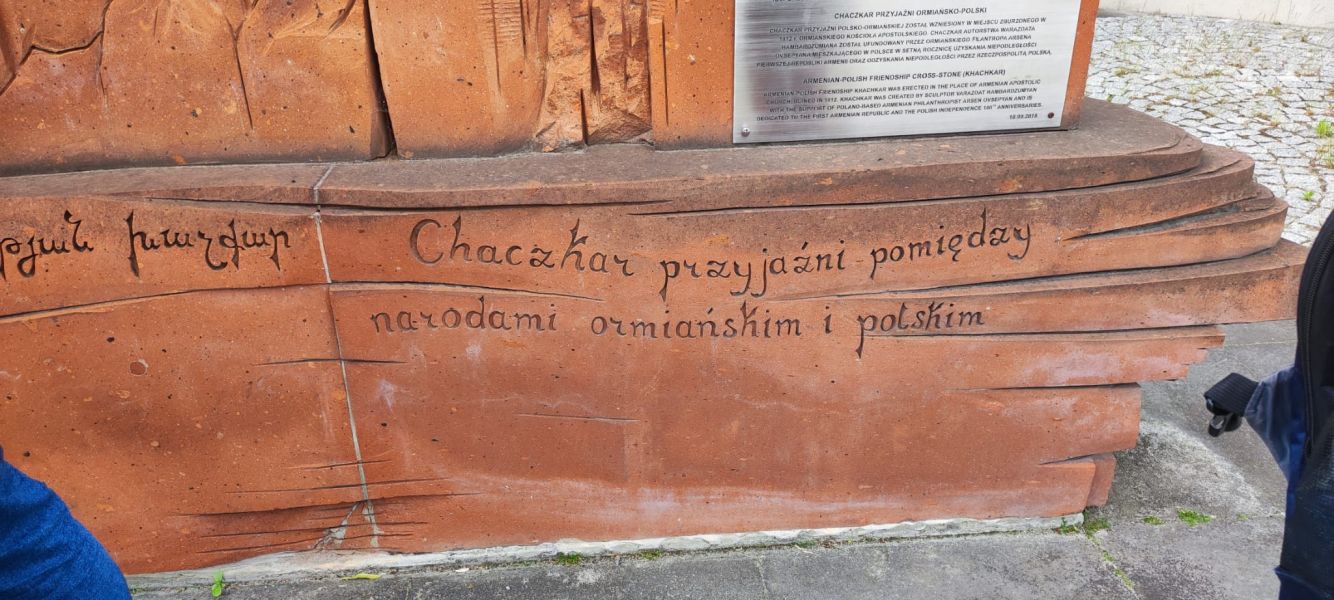 CHACZKAR PRZYJAŹNI ORMIAŃSKO-POLSKI
CHACZKAR PRZYJAŹNI POLSKO-ORMIAŃSKIEJ ZOSTAŁ WZNIESIONY W MIEJSCU ZBURZONEGO W
1812 r. ORMIAŃSKIEGO KOŚCIOŁA APOSTOLSKIEGO. CHACZKAR AUTORSTWA WARAZDATA
HAMBARDZUMIANA ZOSTAŁ UFUNDOWANY PRZEZ ORMIAŃSKIEGO FILANTROPA ARSENA
ONSEPIANA MIESZKAJĄCEGO W POLSCE W SETNĄ ROCZNICĘ UZYSKANIA NIEPODLEGŁOŚCI
PIERWSZEJ REPUBLIKI ARMENII ORAZ ODZYSKANIA NIEPODLEGŁOŚCI PRZEZ RZECZPOSPOLITĄ POLSKĄ.
ARMENIAN-POLISH FRIENDSHIP CROSS-STONE (KHACHKAR)
ARMENIAN-POLISH FRIENDSHIP KHACHKAR WAS ERECTED IN THE PLACE OF ARMENIAN APOSTOLIC
CHURCH RUINED IN 1812. KHACHKAR WAS CREATED BY SCULPTOR VARAZDAT HAMBARDZUMYAN
WITH THE SUPPORT OF POLAND-BASED ARMENIAN PHILANTHROPIST ARSEN OVSEPYAN AND IS
DEDICATED TO THE FIRST ARMENIAN REPUBLIC AND THE POLISH INDEPENDENCE 100TH ANNIVERSARIES.
18.09.2018.
թյան խաչքար
Chaczkar przyjaźni pomiędzy
narodami ormiańskim i polskim